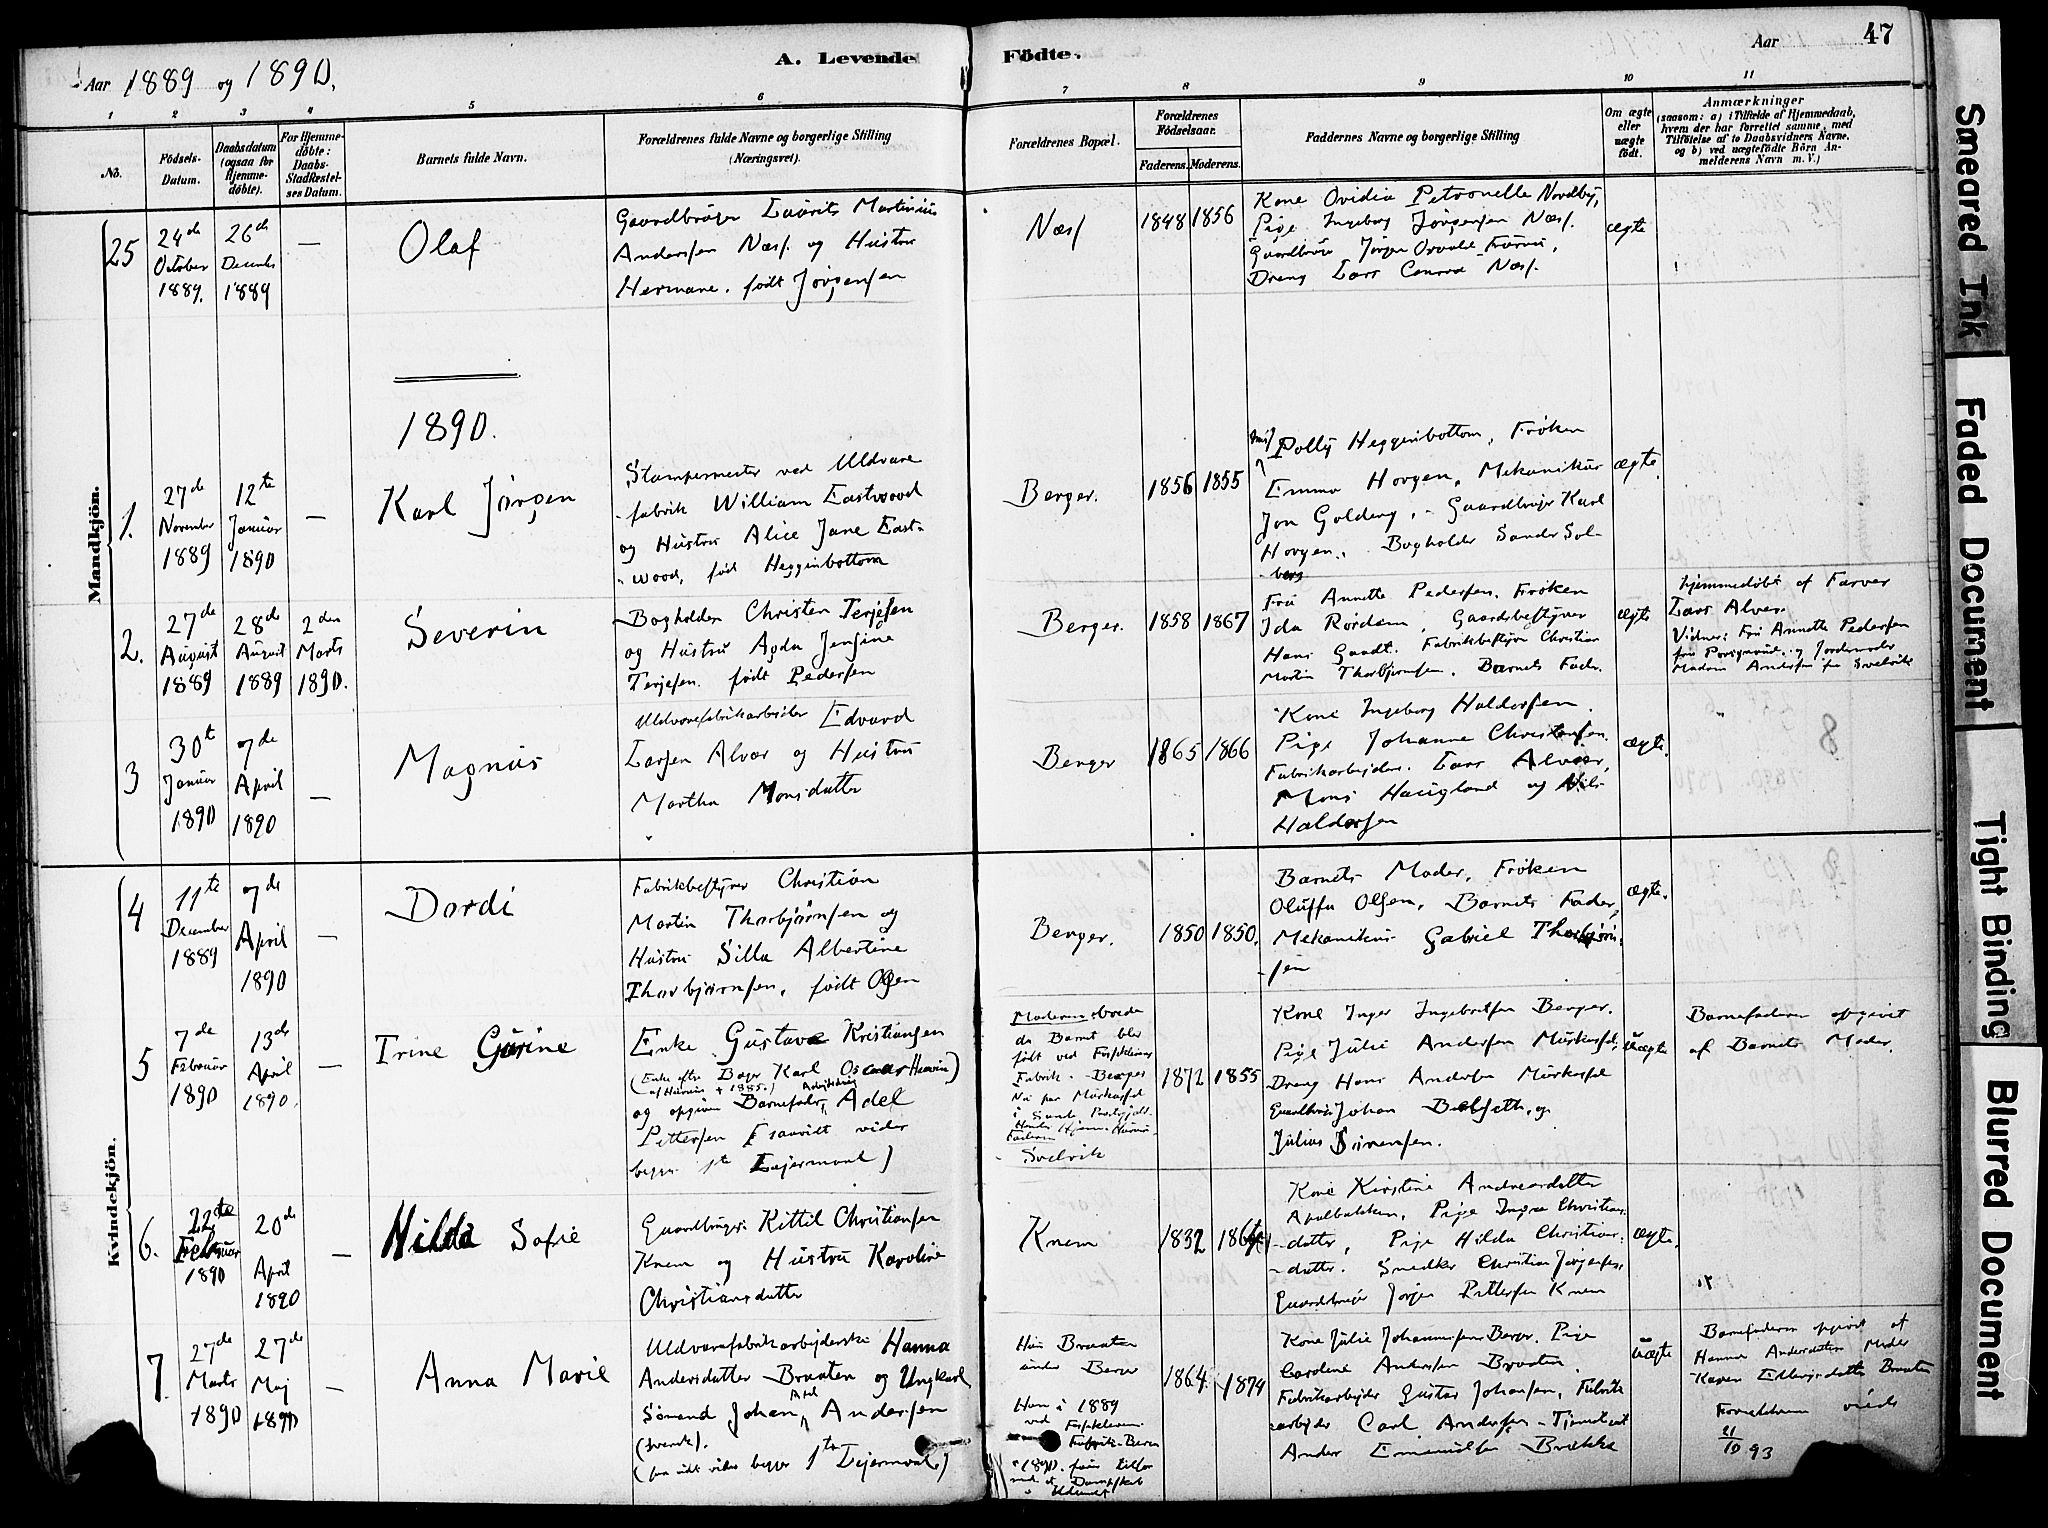 Aar 1889 og 1890.
A. Levende Födte.
Aar
47
1 2 3 4 5 6 7 8 9 10 11
No.
Födsels-Datum.
Daabsdatum (ogsaa for Hjemme-döbte).
For Hjemme-döbte: Daabs-Stadfæstel-ses Datum.
Barnets fulde Navn.
Forældrenes fulde Navne og borgerlige Stilling (Næringsvei).
Forældrenes Bopæl.
Forældrenes Födselsaar.
Faderens. Moderens.
Faddernes Navne og borgerlige Stilling
Om ægte eller uægte födt.
Anmærkninger
(saasom: a) i Tilfælde af Hjemmedaab, hvem der har forrettet samme, med Tilföielse af to Daabsvidners Navne, og b) ved uægtefödte Börn An-melderens Navn m. V.)
Mandkjön.
25
24de October 1889.
26de Decemb 1889
—
Olaf
Gaardbruger Laurits Martinius
Anderssen Næss. og Hustru
Hermane. født Jørgensen
Næss
1848 1856
Kone Ovidia Petronelle Nordby,
Pige Ingeborg Jørgensen Næss.
Gaardbruger Jørgen Osvald
Dreng Lars Conrad Næss.
ægte
1890.
1.
27de November 1889
12te Januar 1890
—
Karl Jørgen
Stampemester ved Uldvare
-fabrik William Eastwood
og Hustru Alice Jane East-
-wood, født Hegginbottom
Berger.
1856 1855
Polly Hegginbottom, Frøken
Emma Horgen, Mekanikus
Jon Golberg, - Gaardbruger Karl
Horgen, Bogholder Sander Sol-
-berg
ægte.
2.
27de August 1889
28de August 1889
2den Marts 1890.
Severin
Bogholder Christen Terjesen
og Hustru Agda Jensine
Terjesen. født Pedersen
Berger.
1858 1867
Fru Annette Pedersen, Frøken
Ida Rørdam, Gaardsbestyrer
Hans Gaadt. Fabrikbestyrer Christian
Martin Thorbjørnsen. Barnets Fader.
ægte
Hjemmedøbt af Farver
Lars Alver.
Vidner: Fru Annette Pedersen
og Jordemoder
Madam Andersen fra Svelvik
3
30te Januar 1890
7de April 1890
—
Magnus
Uldvarefabrikarbeider Edvard
Larsen Alver og Hustru
Martha Monsdatter
Berger
1865 1866
Kone Ingeborg Haldorsen.
Pige Johanne Christensen.
Fabrikarbejder. Lars Alver,
Mons Haugland og Nils
Haldorsen
ægte.
Kvindekjön.
4
11te December 1889
7de April 1890
—
Dordi
Fabrikbestyrer Christian
Martin Thorbjørnsen og
Hustru Silla Albertine
Thorbjørnsen, født Olsen
Berger.
1850 1850.
Barnets Moder, Frøken
Oluffa Olsen, Barnets Fader,
Mekanikus Gabriel Thorbjørn-
-sen
ægte.
5
7de Februar 1890
13de April 1890.
—
Trine Gurine
Enke Gustava Kristiansen
(Enke efter Bager Karl Oscar
+ 1885.)
og opgiven Barnefader, Adel
Pettersen
begges 1te Lejermaal)
Moderens
da Barnet blev
født ved
Fabrik. Berger
Svelvik
1872 1855
Kone Inger Ingebretsen Berger.
Pige Julie Andersen
Dreng Hans Andersen
Gaardbruger Johan og
Julius Sørensen.
uægte
Barnefaderen opgivet
af Barnets Moder.
6.
22de Februar 1890
20de April 1890
—
Hilda Sofie
Gaardbruger Kittil Christiansen
Knem og Hustru Karoline
Christiansdatter
Knem
1832
Kone Kirstine Andreasdatter
Apalbakken, Pige Inga Christian-
-datter, Pige Hilda Christian-
-datter. Snedker Christian Jørgensen,
Gaardbruger Jørgen Pettersen Knem
ægte.
7.
27de Marts 1890
27de Maj 1890
—
Anna Marie
Uldvarefabrikarbejderske Hanna
Andersdatter Braaten og Ungkarl
Sømand Johan Andersen
(svensk).
begges 1te Lejermaal)
Hun Braaten
under Berger
Han i 1889
ved
Fabrik - Berger
i 1890.
1864. 1874
Kone Julie Johannesen Berger. Pige
Caroline Andersen Braaten,
Fabrikarbejder Gustav Johansen, Fabrik
arbejder Carl Andersen -
Anders Emanuelsen
uægte
Barnefaderen opgivet af
Hanna Andersdatters Moder
Karen Braaten
Forældrene viede
21/10 93
Smeared Ink
Faded Document
Tight Binding
Blurred Document